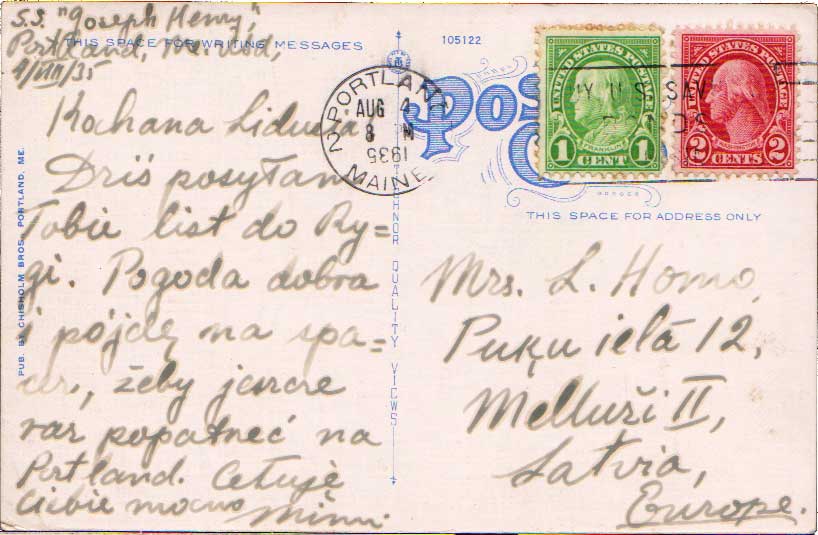 S.S. "Joseph Henry",
Portland, Me. Usa,
4/VIII/35
THIS SPACE FOR WRITING MESSAGES
Kochana Lidusia
Dziś posyłam
Tobie list do Ry=
gi. Pogoda dobra
i pójdę na spa=
cer, żeby jeszcze
raz popatrzeć na
Portland. Całuję
Ciebie mocno
Mimi
PUB. BY CHISHOLM BROS. PORTLAND, ME.
TICHNOR QUALITY VIEWS
105122
PORTLAND
AUG 4
8 M
1935
MAINE
2
UNITED STATES POSTAGE
FRANKLIN
1 CENT 1
UNITED STATES POSTAGE
2 CENTS 2
THIS SPACE FOR ADDRESS ONLY
Mrs. L. Homo,
Puķu ielā 12,
Melluži II,
Latvia,
Europe.